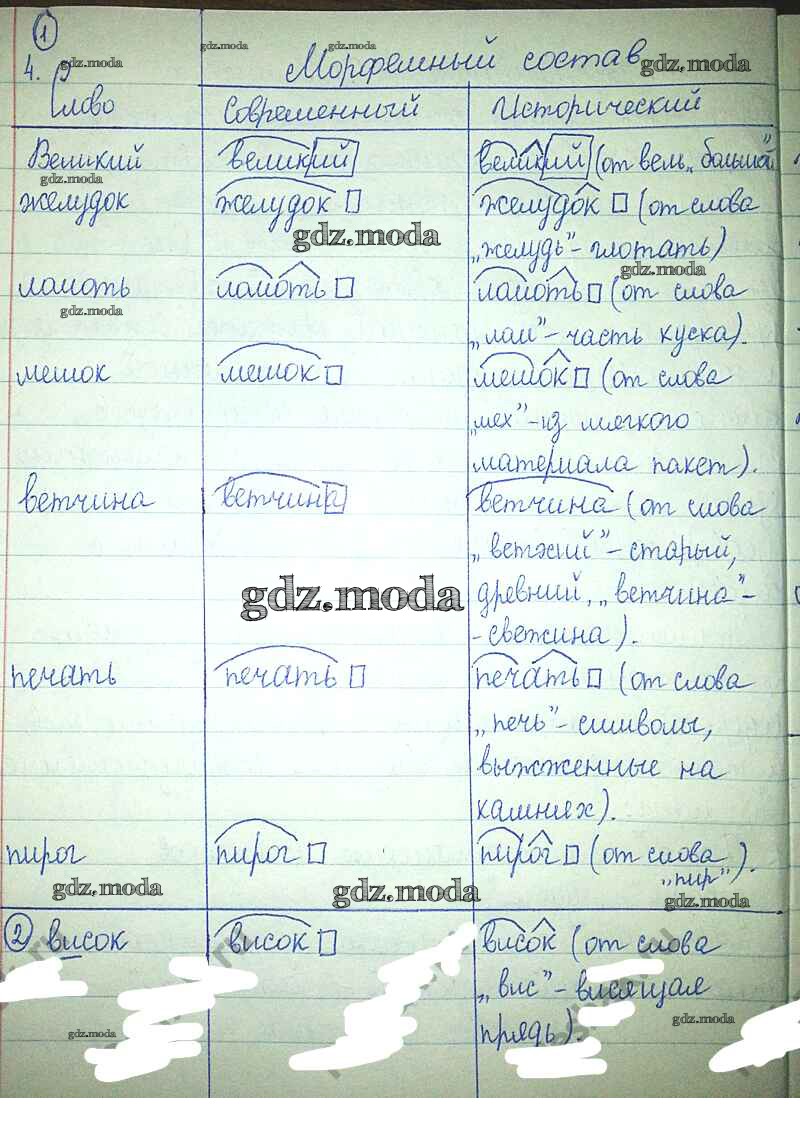 1
gdz.moda gdz.moda
4. gdz.moda Морфемный состав gdz.moda
Слово Современный Исторический
Великий великий великий (от вель „большой"
gdz.moda
желудок желудок желудок (от слова
gdz.moda „желудь" - глотать)
gdz.moda
ломоть ломоть ломоть (от слова
gdz.moda „лом" - часть куска).
мешок мешок мешок (от слова
„мех" - из мягкого
материала пакет).
ветчина ветчина ветчина (от слова
„ветхий" - старый,
gdz.moda древний, „ветчина" -
- свежина).
печать печать печать (от слова
„печь" - символы,
выжженные на
камнях).
пирог пирог пирог (от слова „пир").
gdz.moda gdz.moda gdz.moda
2 висок висок висок (от слова
„вис" - висящая
gdz.moda gdz.moda gdz.moda
прядь).